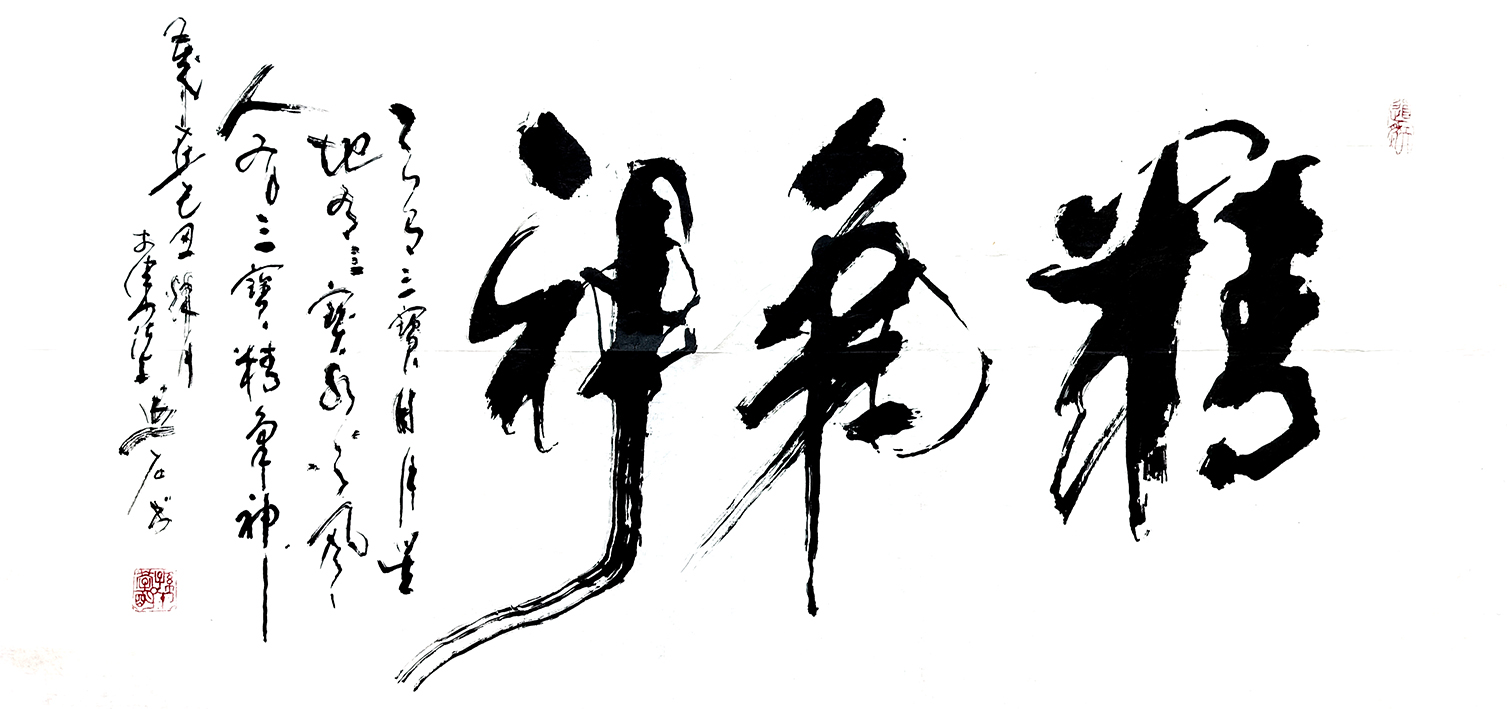 精氣神
天有三寶日月星
地有三寶水火風
人有三寶精氣神
歲在己丑